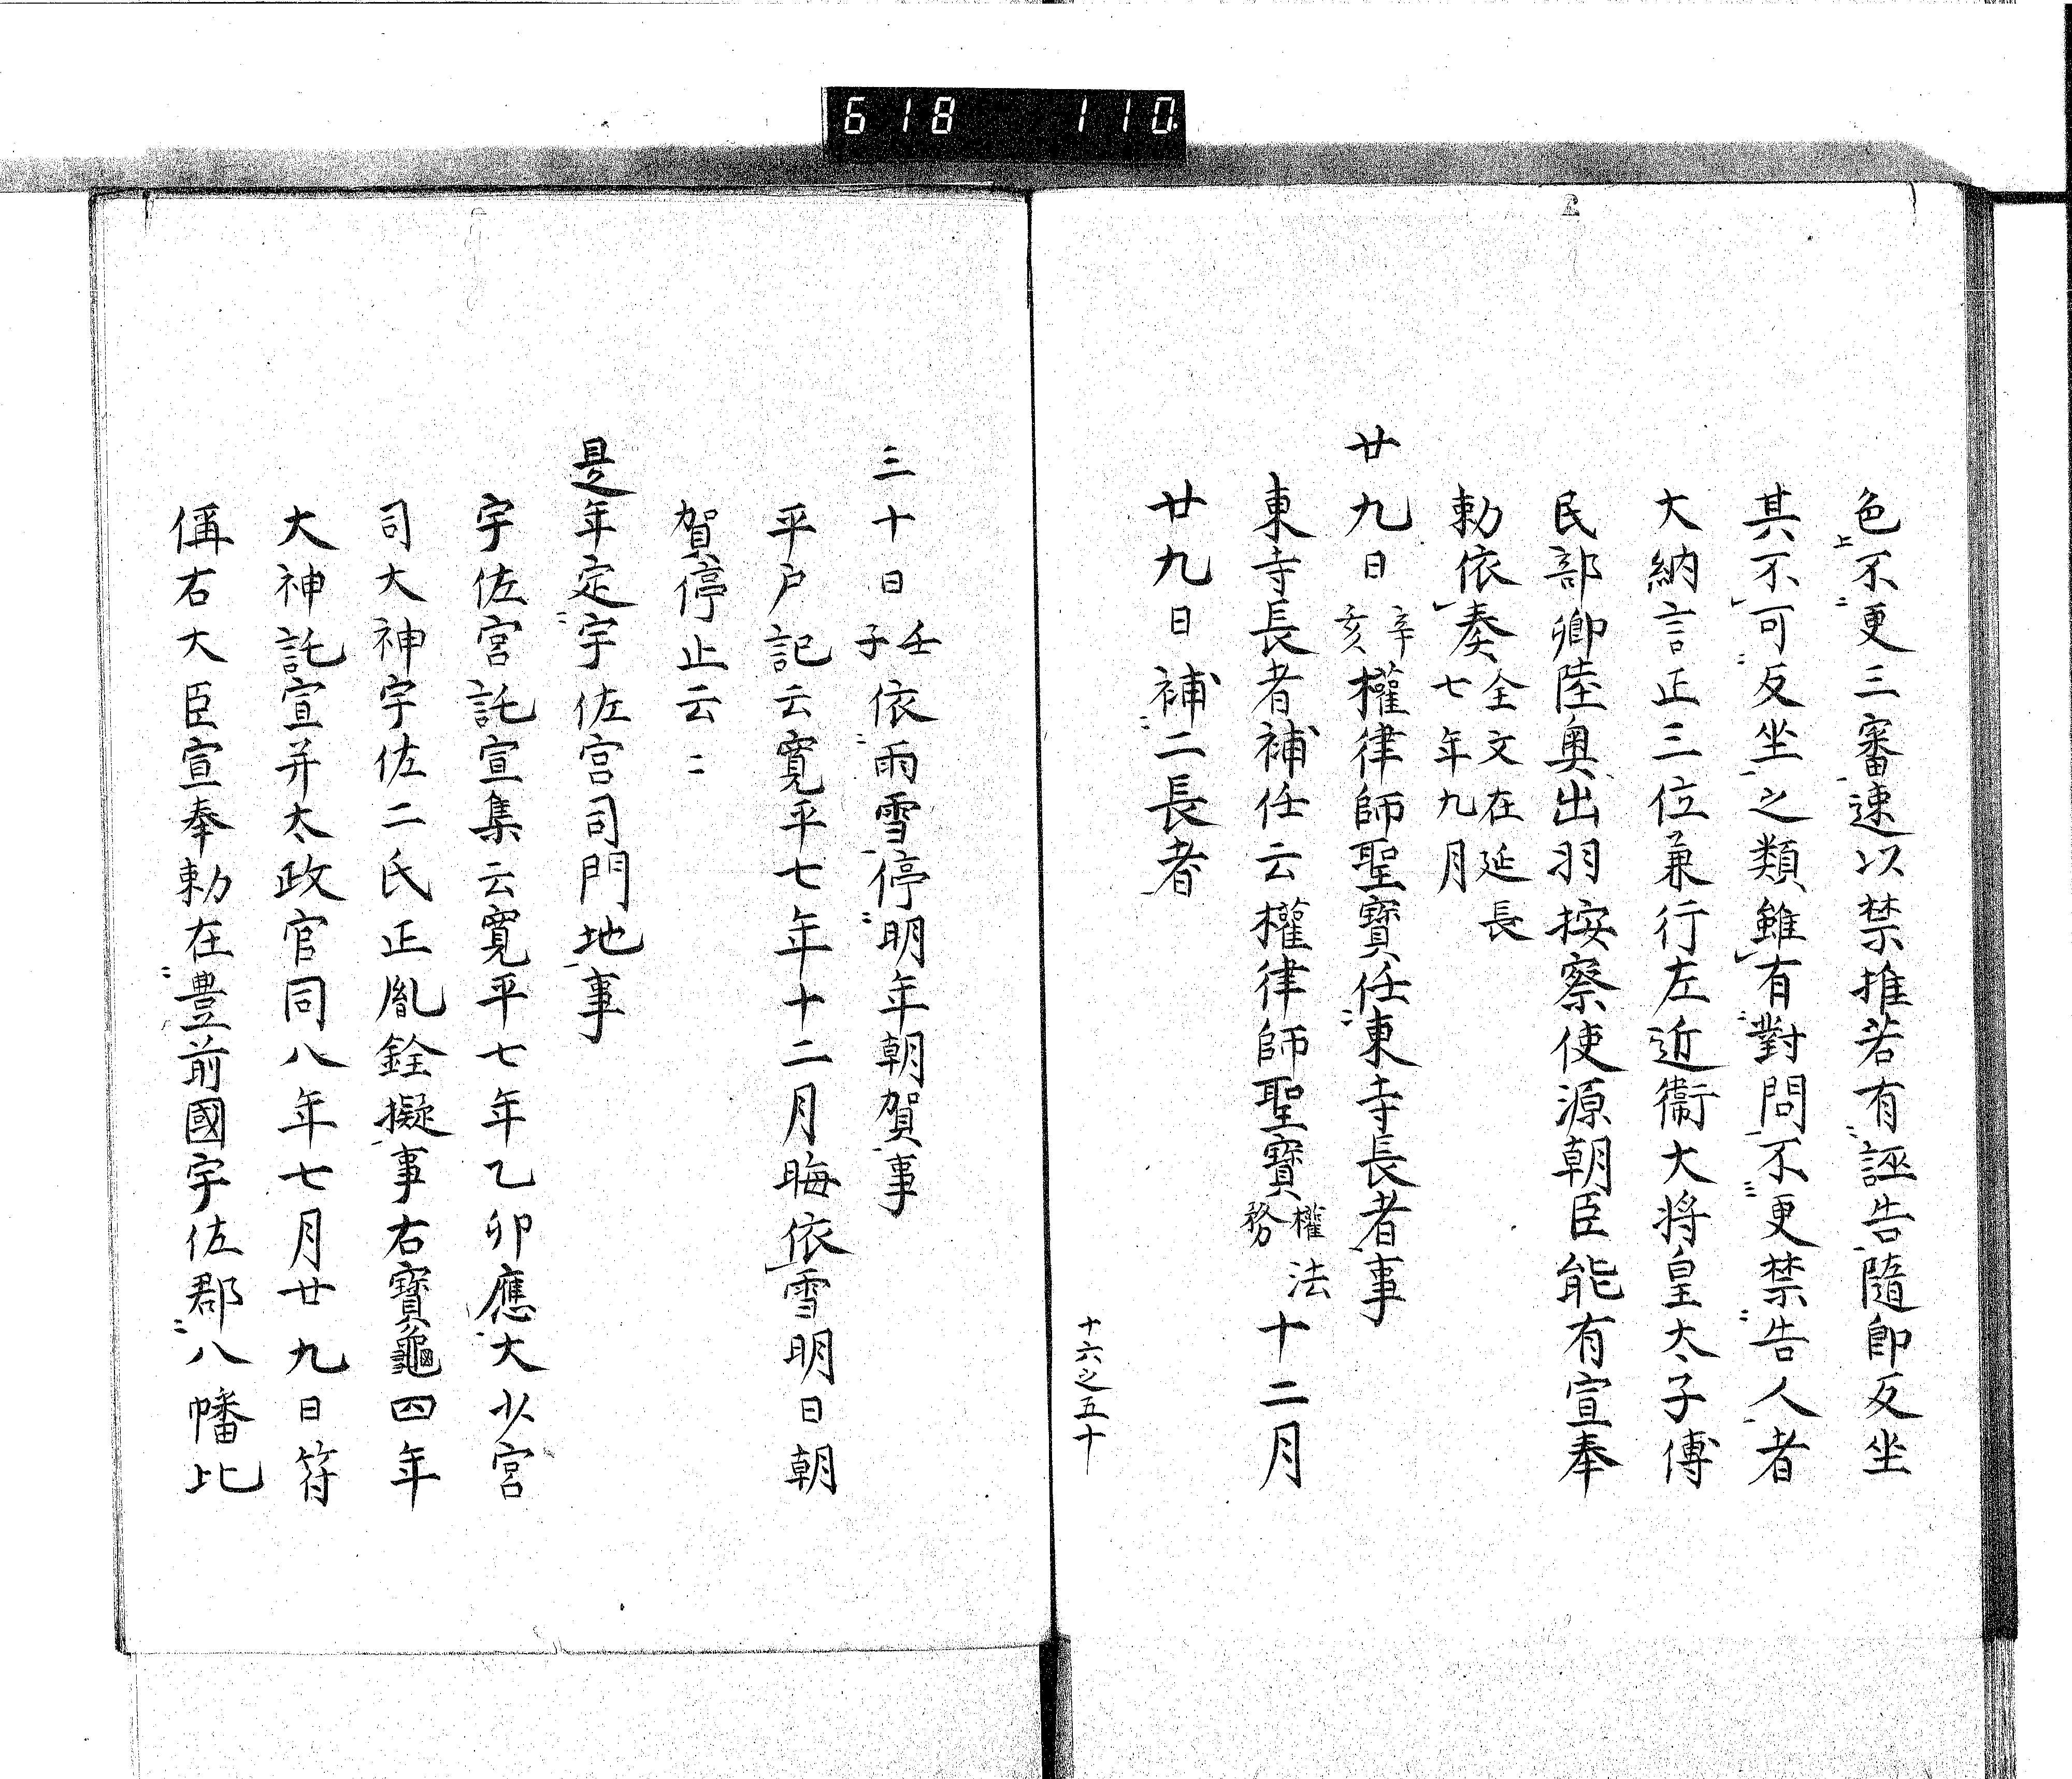 618 110
色不更三審速以禁推若有誣告隨即反坐
其不可反坐之類雖有對問不更禁告人者
大納言正三位兼行左近衞大将皇太子傅
民部卿陸奥出羽按察使源朝臣能有宣奉
勅依奏全文在延長七年九月
廿九日辛亥權律師聖寶任東寺長者事
東寺長者補任云權律師聖寶權法務十二月
廿九日補二長者
十六之五十
三十日壬子依雨雪停明年朝賀事
平戸記云寛平七年十二月晦依雪明日朝
賀停止云〻
是年定宇佐宮司門地事
宇佐宮託宣集云寛平七年乙卯應大少宮
司大神宇佐二氏正胤銓擬事右寶龜四年
大神託宣并太政官同八年七月廿九日符
偁右大臣宣奉勅在豊前國宇佐郡八幡比